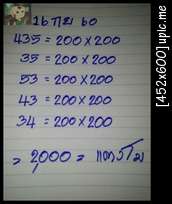 16 กย 60
435 = 200 x 200
35 = 200 x 200
53 = 200 x 200
43 = 200 x 200
34 = 200 x 200
= 2000 =
[452x600] upic.me